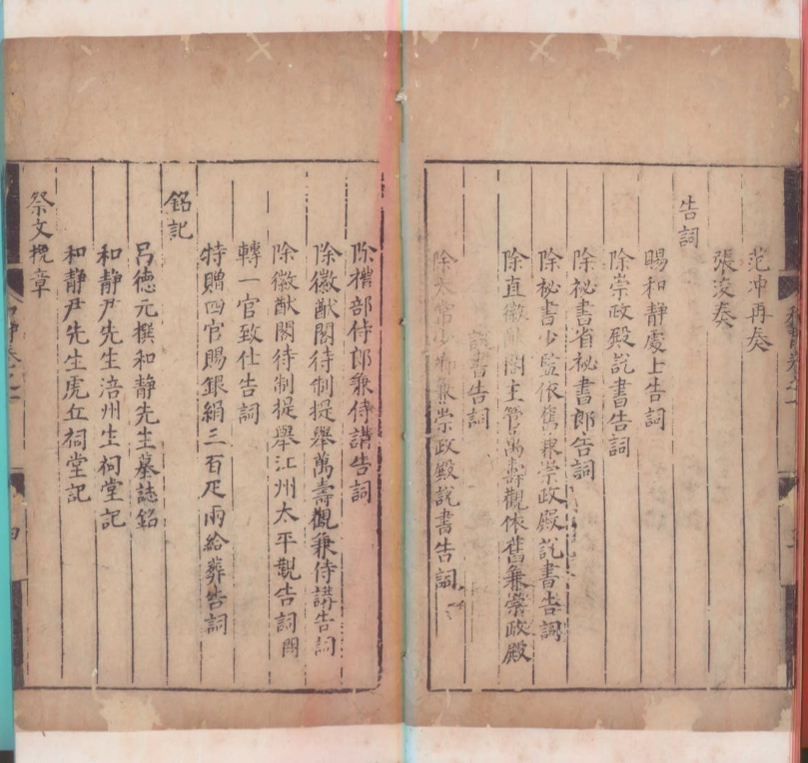 范冲再奏
張浚奏
告詞
賜和靜處士告詞
除崇政殿說書告詞
除祕書省祕書郎告詞
除祕書少監依舊兼崇政殿說書告詞
除直徽猷閣主管萬壽觀依舊兼崇政殿
說書告詞
除太常少卿兼崇政殿說書告詞
除禮部侍郎兼侍講告詞
除徽猷閣待制提舉萬壽觀兼侍講告詞
除徽猷閣待制提舉江州太平觀告詞闕
轉一官致仕告詞
特贈四官賜銀絹三百疋兩給葬告詞
銘記
呂德元撰和靜先生墓誌銘
和靜尹先生涪州生祠堂記
和靜尹先生虎丘祠堂記
祭文挽章